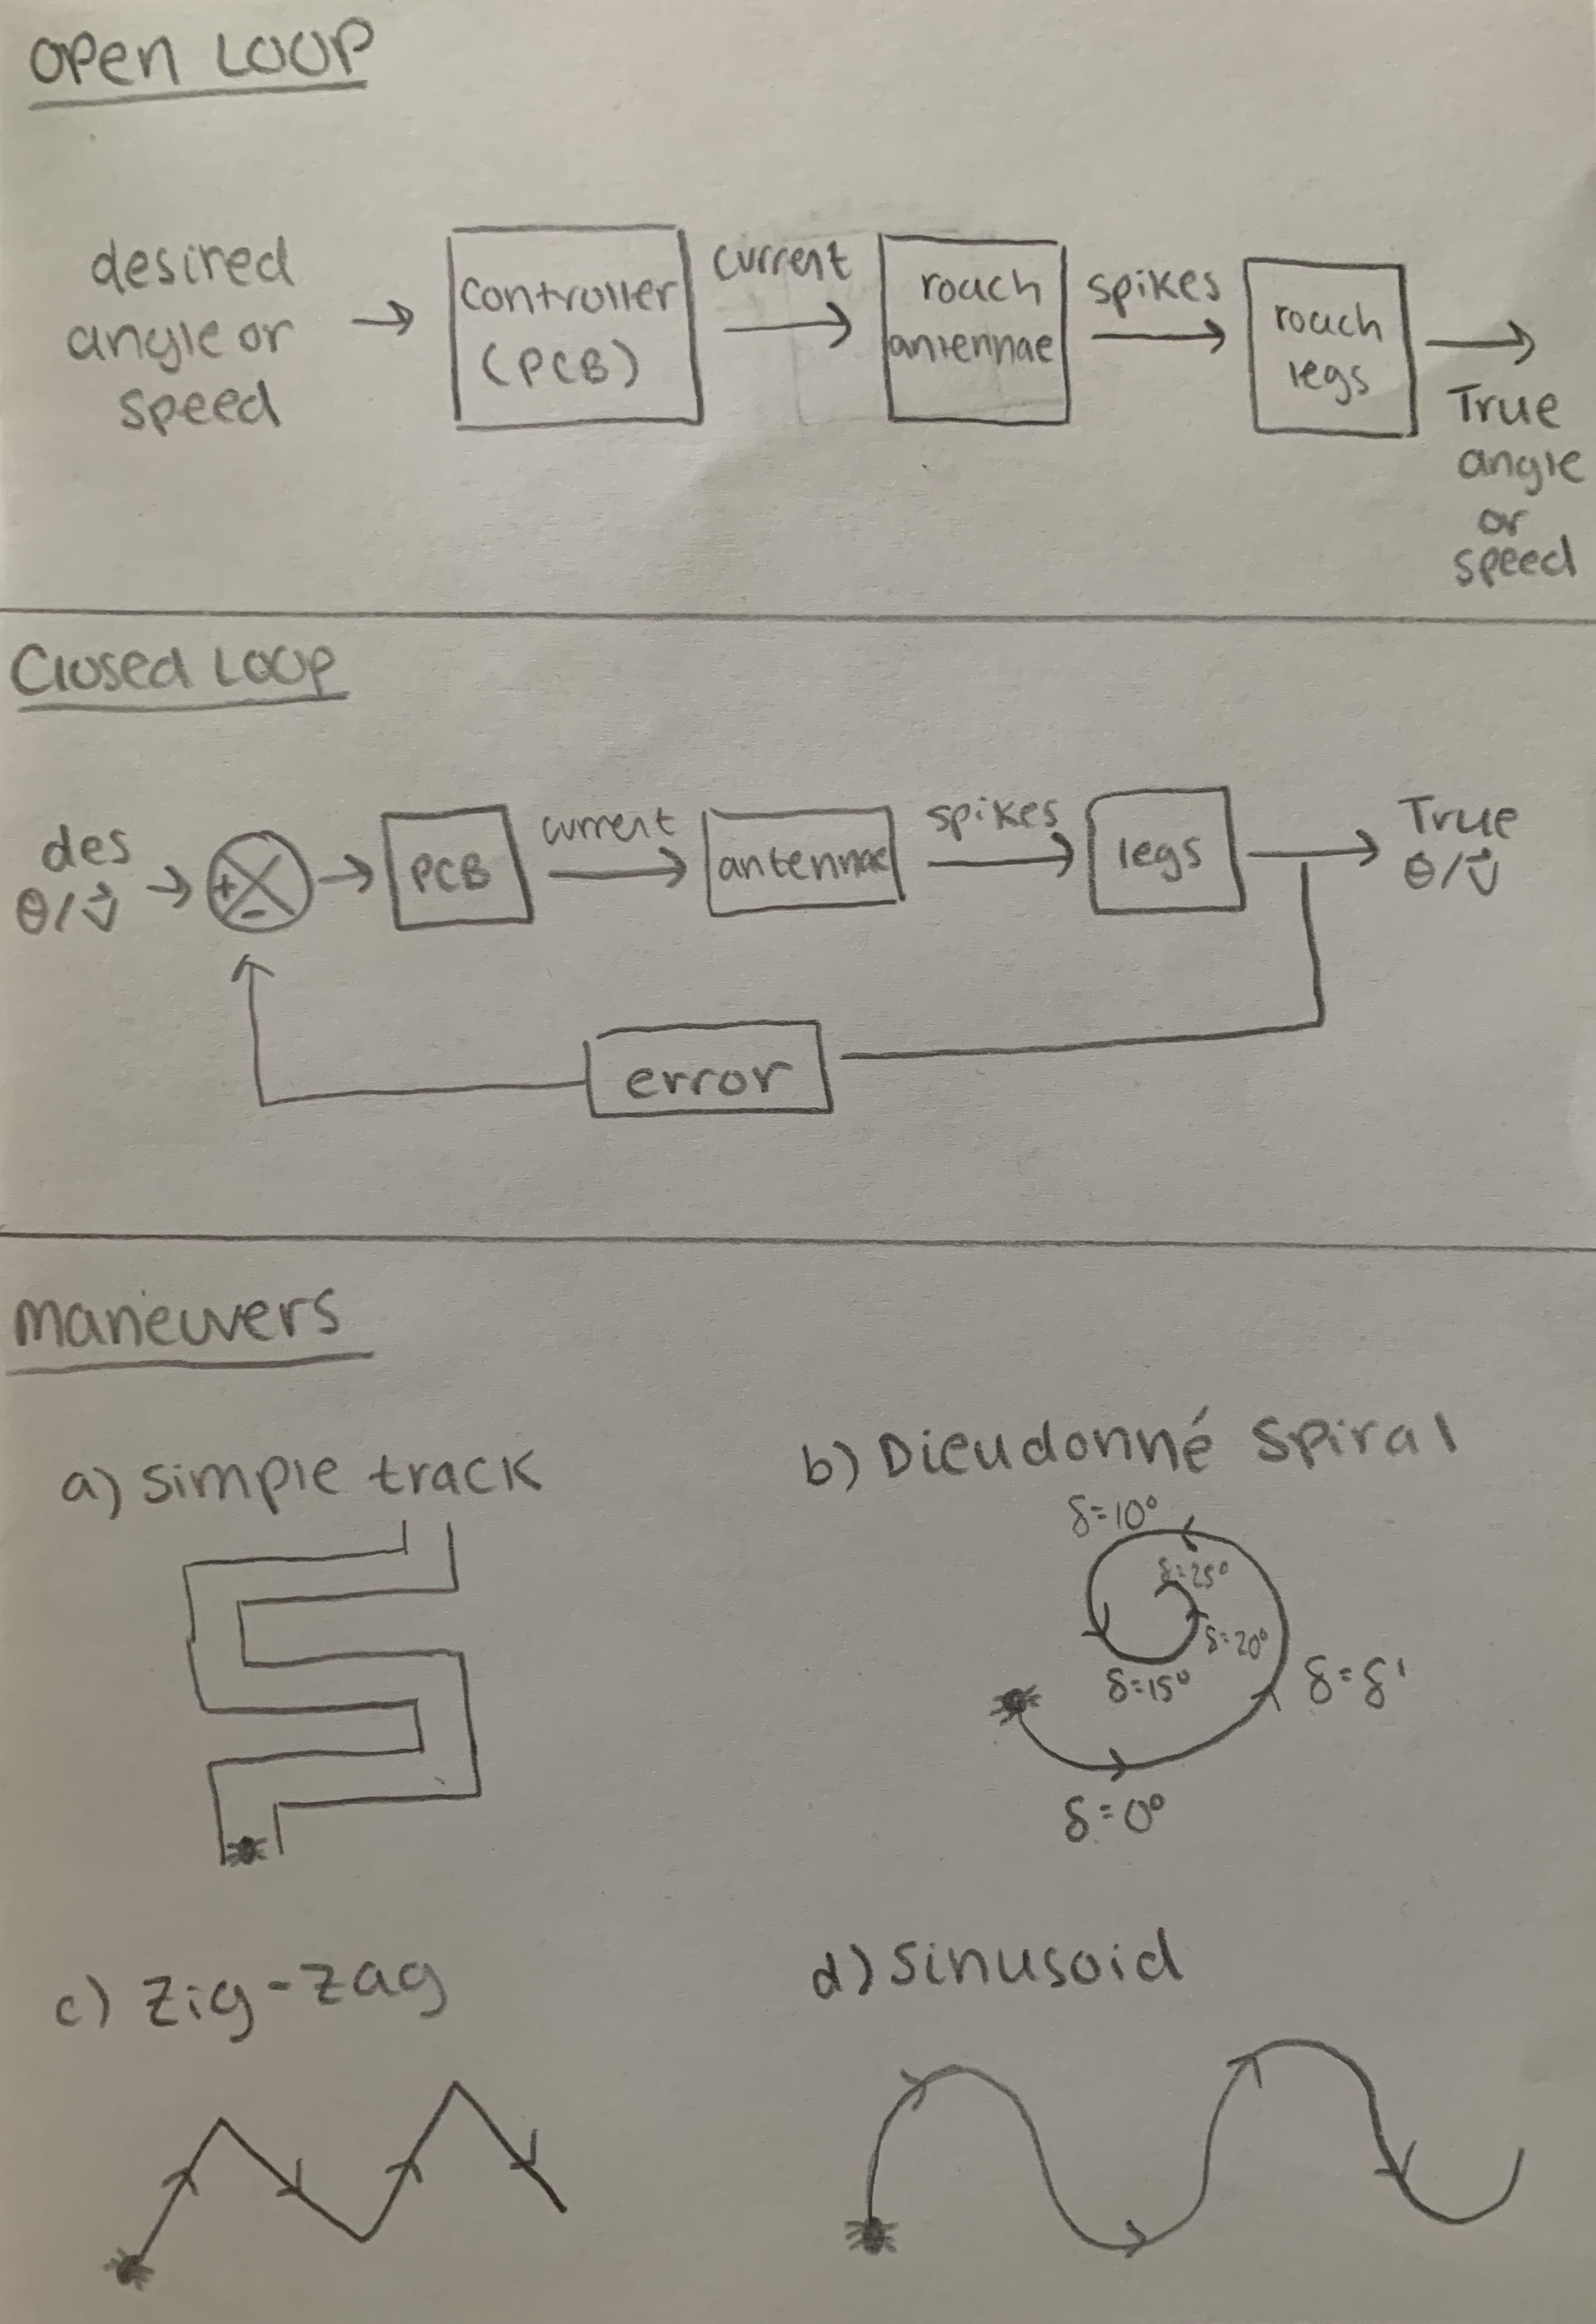 OPEN LOOP
desired
angle or
speed
controller
(PCB)
current
roach
antennae
spikes
roach
legs
True
angle
or
speed
Closed Loop
des
θ/v⃗
+
-
PCB
current
antennae
spikes
legs
True
θ/v⃗
error
maneuvers
a) simple track
b) Dieudonné spiral
δ=10°
δ=25°
δ=20°
δ=15°
δ=δ'
δ=0°
c) zig-zag
d) sinusoid